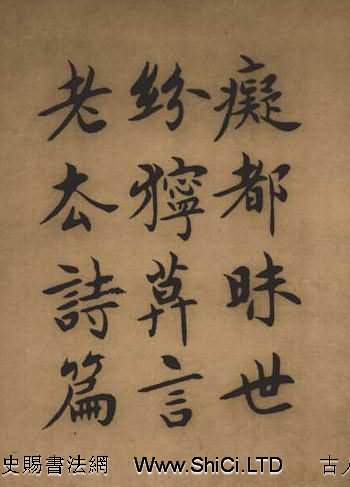 癡都昧世
紛獰言
老厺詩篇
史賜書法網 Www.ShiCi.LTD 古